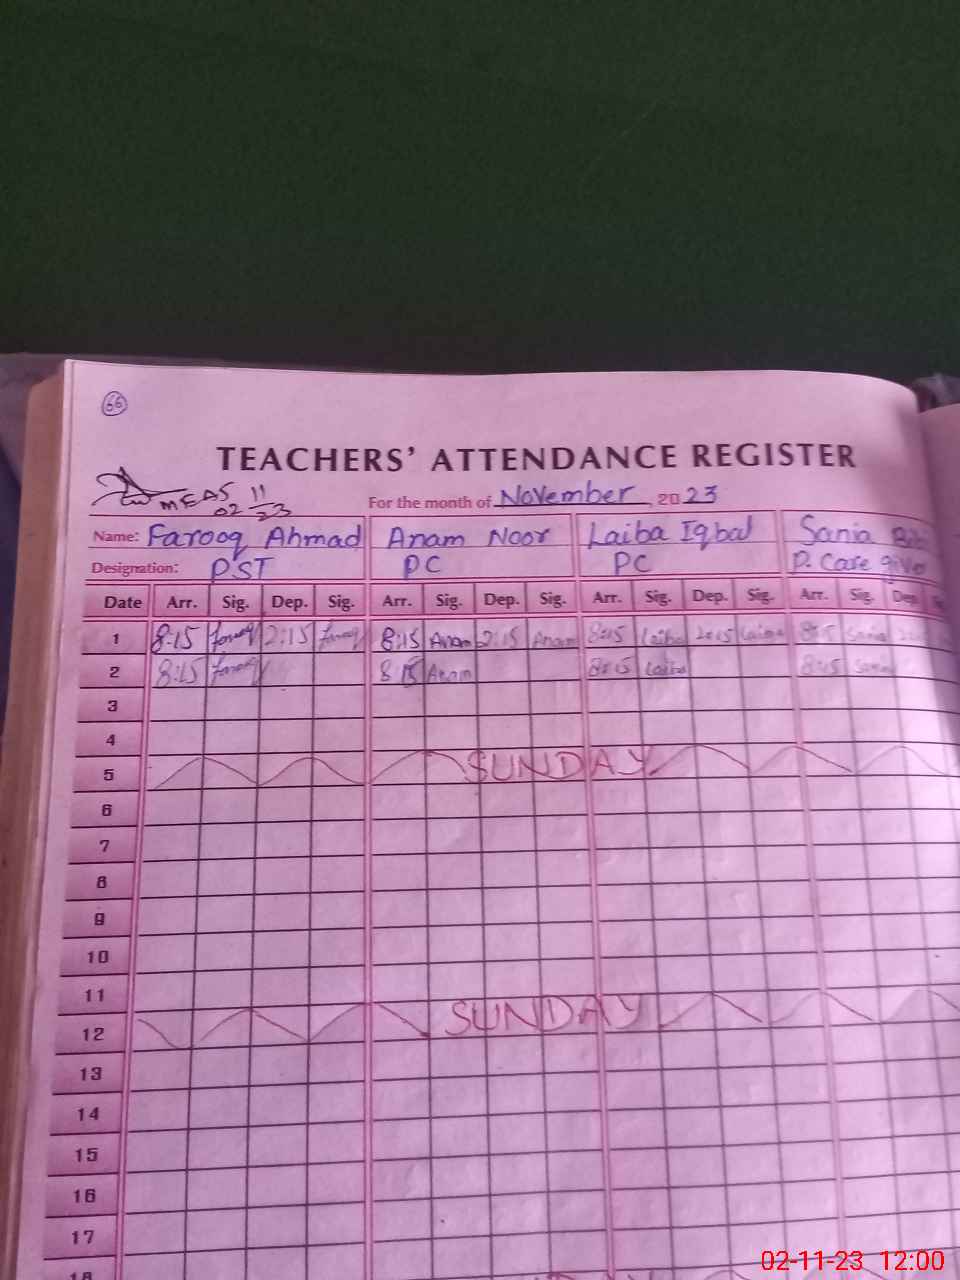 66
TEACHERS' ATTENDANCE REGISTER
MEAS 02 11 23
For the month of November, 2023
Name: Farooq Ahmad Anam Noor Laiba Iqbal Sania Bibi
Designation: PST PC PC D. Care give
Date Arr. Sig. Dep. Sig. Arr. Sig. Dep. Sig. Arr. Sig. Dep. Sig. Arr. Sig. Dep.
1 8:15 farooq 2:15 farooq 8:15 Anam 2:15 Anam 8:15 Laiba 2:15 Laiba 8:15 Sania
2 8:15 farooq 8:15 Anam 8:15 Laiba 8:15 Sania
3
4
5 SUNDAY
6
7
8
9
10
11
12 SUNDAY
13
14
15
16
17
18
02-11-23 12:00